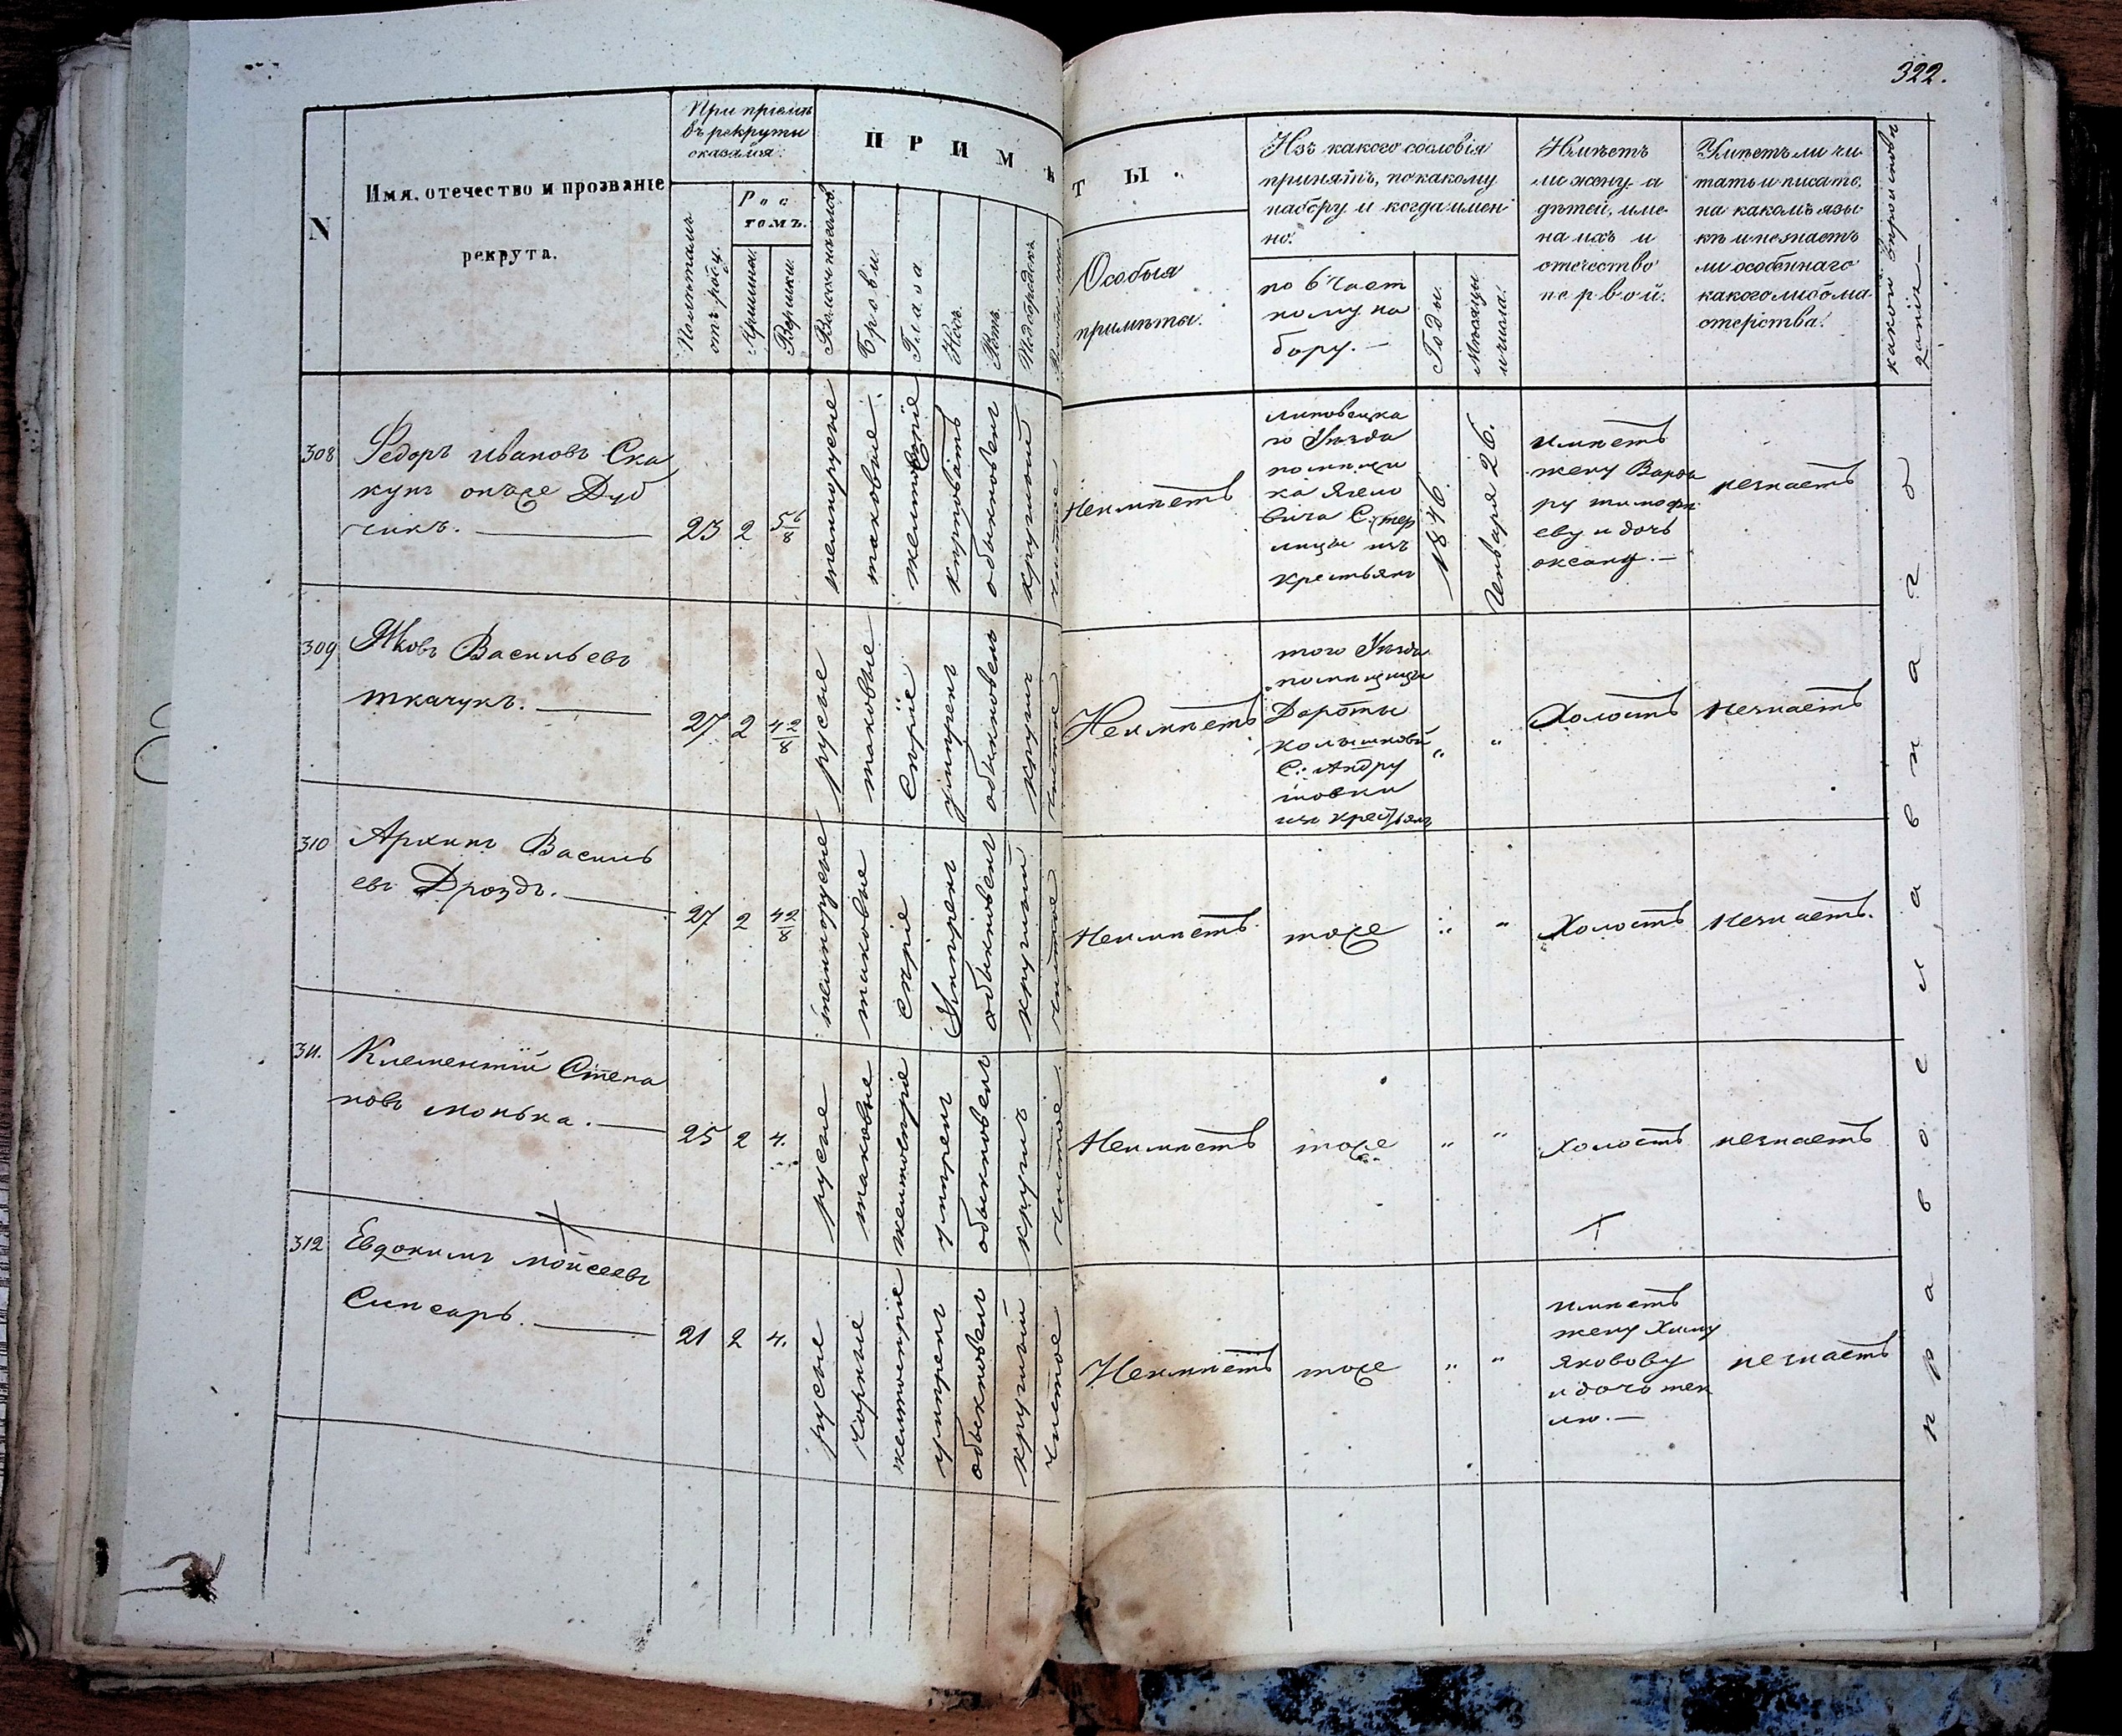 322.
N
Имя, отечество и прозваніе
рекрута.
При пріемѣ
въ рекруты
оказался:
По лѣтамъ
отъ роду.
Рос
томъ.
Аршины.
Вершки.
Волосы на головѣ.
Брови.
Глаза.
Носъ.
Ротъ.
Подбородокъ.
ПРИМѢ
ТЫ.
Особыя
примѣты.
Изъ какого сословія
принятъ, по какому
набору и когда имен
но.
по 6 част
ному на
бору. —
Годы.
Мѣсяцы
и числа.
Имѣетъ
ли жену и
дѣтей, име
на ихъ и
отчество
первой.
Умѣетъ ли чи
тать и писать,
на какомъ язы
кѣ и незнаетъ
ли особеннаго
какого либо ма
стерства.
какого вѣроисповѣ
данія —
308
Федоръ Ивановъ Ска
кунъ онъже Дуб
чикъ.
23
2
5 6/8
темнорусые
таковые
желтосѣріе
круповатъ
обыкновенъ
круглый
чистое
Неимѣетъ
липовецка
го Уѣзда
помѣщи
ка Ягело
вича С.
лицы изъ
крестьянъ
1846.
Генваря 26.
имѣетъ
жену Варва
ру тимофѣ
еву и дочь
оксану. —
незнаетъ
309
Яковъ Васильевъ
ткачукъ.
27
2
4 2/8
русые
таковые
Сѣріе
умѣренъ
обыкновенъ
круглъ
чистое
Неимѣетъ
того Уѣзда
помѣщицы
Дароты
С: Андру
шовки
изъ крестьянъ
"
"
Холостъ
Незнаетъ
310
Архипъ Василь
евъ Дроздъ.
27
2
4 2/8
темнорусые
таковые
сѣріе
Умѣренъ
обыкновенъ
круглый
чистое
Неимѣетъ
тоже
"
"
Холостъ
Незнаетъ.
311.
Клементій Степа
новъ монька.
25
2
4.
русые
таковые
желтосѣріе
умѣренъ
обыкновенъ
круглъ
чистое
Неимѣетъ
тоже
"
"
Холостъ
незнаетъ
312
Евдокимъ мойсеевъ
Слисаръ.
21
2
4.
русые
чорные
желтосѣріе
умѣренъ
обыкновенъ
круглый
чистое
Неимѣетъ
тоже
"
"
имѣетъ
жену Химу
яковову
и дочь тек
лю. —
незнаетъ
православнаго